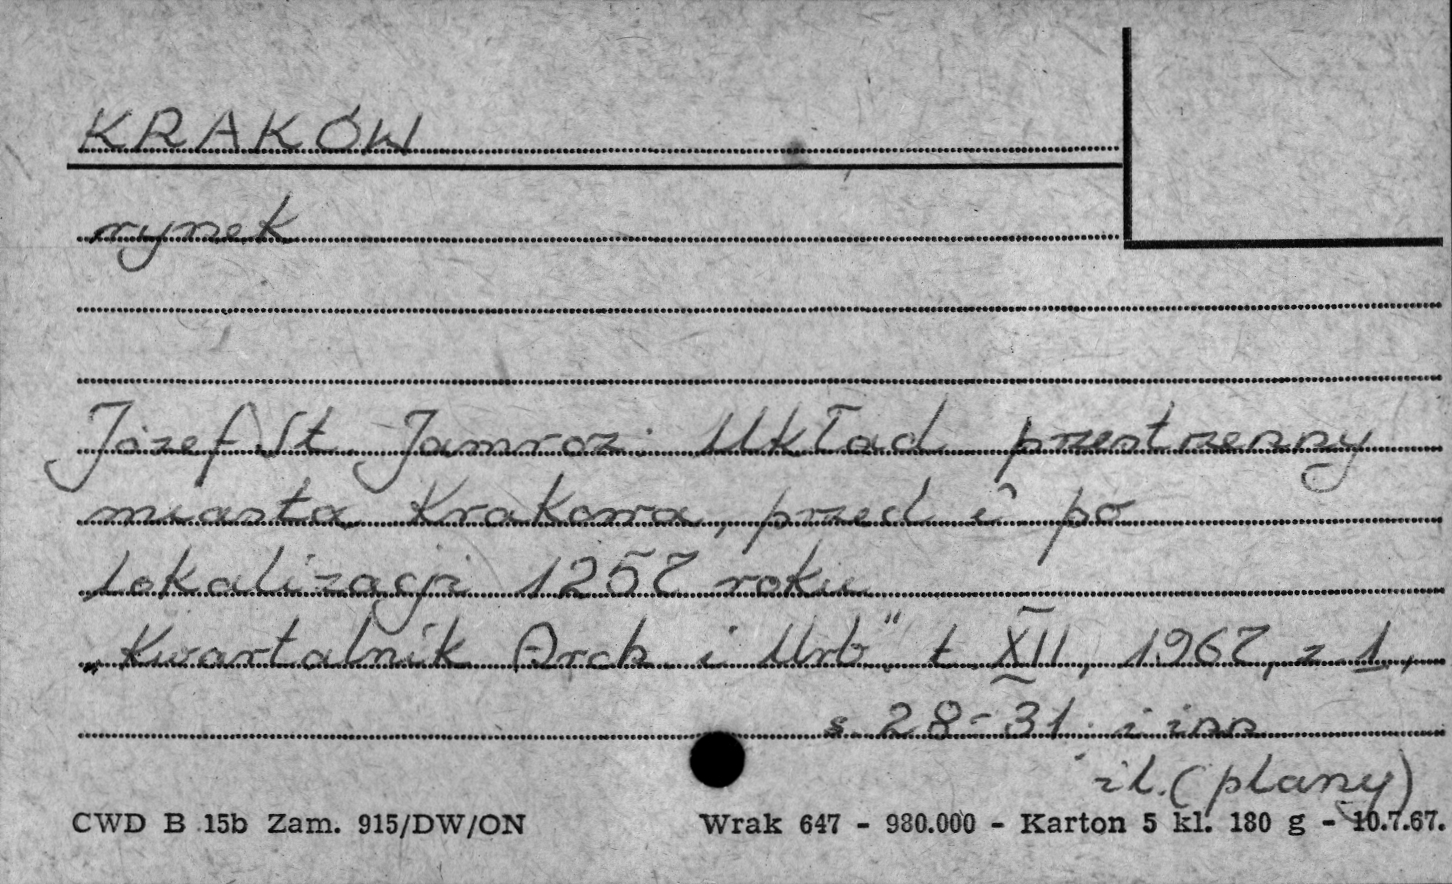 KRAKÓW
rynek
Józef St. Jamroz: Układ przestrzenny
miasta Krakowa, przed i po
lokalizacji 1257 roku
„Kwartalnik Arch. i Urb." t. XII, 1967, z. 1,
s. 28-31 i inn
il. (plany)
CWD B 15b Zam. 915/DW/ON Wrak 647 - 980.000 - Karton 5 kl. 180 g - 10.7.67.